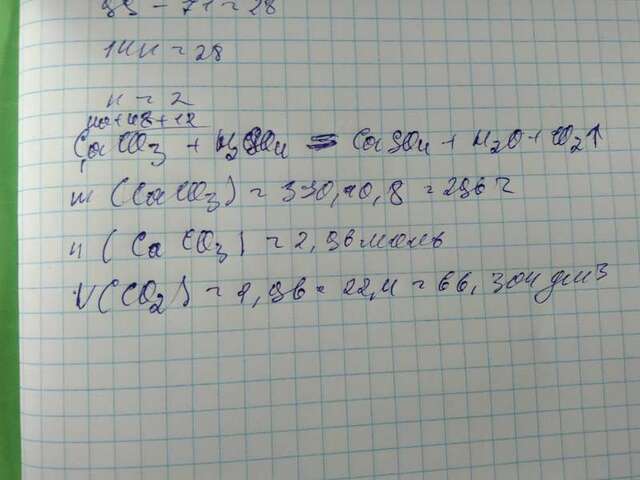 99 - 71 = 28
14n = 28
n = 2
40+48+12
CaCO3 + H2SO4 = CaSO4 + H2O + CO2↑
m (CaCO3) = 370,0,8 = 296 г
n (CaCO3) = 2,96 моль
V(CO2) = 2,96 * 22,4 = 66,304 дм3